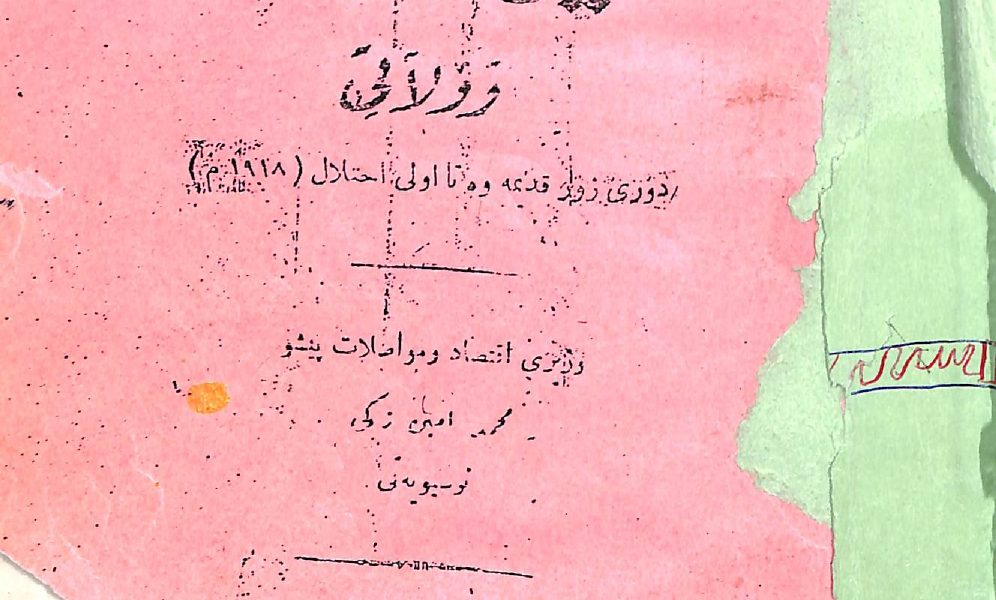 و ولاتی
دوری زور قدیمه وه تا اولی احتلال (١٩١٨ م)
وزیری اقتصاد ومواصلات پیشو
محمد امین زکی
نوسیویەتی